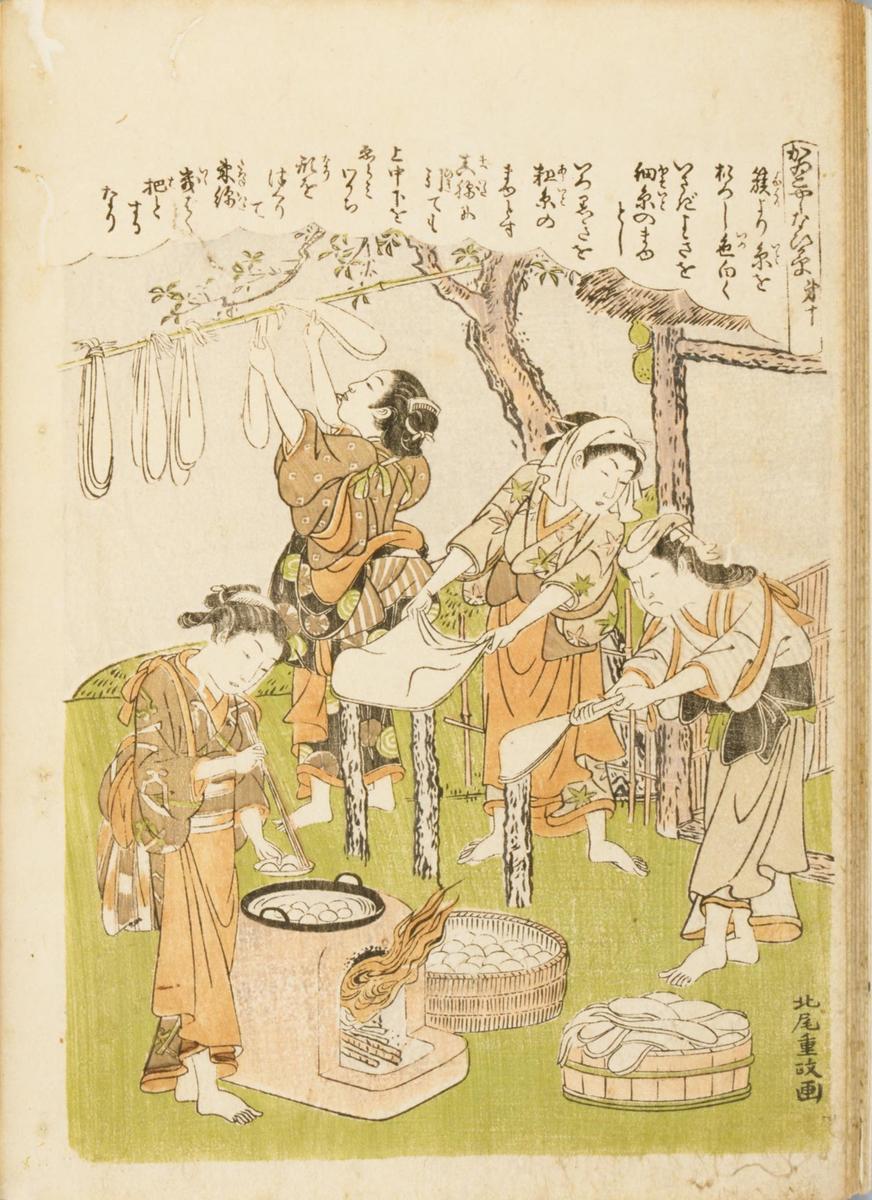 かゐこやしなひ草 第十
簇より糸を
おろし色白く
いさぎよきを
細糸のまゆ
とし
いろ
粗糸の
まゆとす
真綿
引ても
上中下を
ゑらミ
わかち
形を
つくり
て
束綿
幾
把と
する
なり
北尾重政画